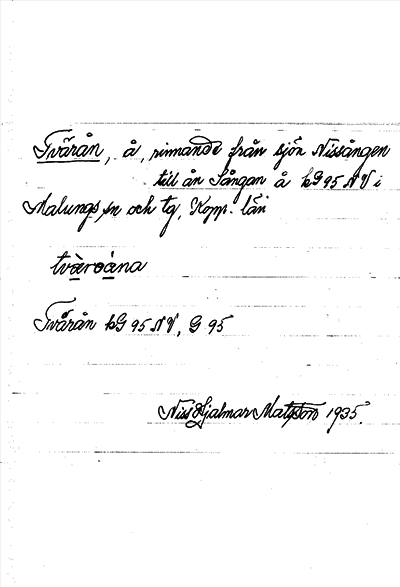 Tvärån, å, rinnande från sjön Nissången
till ån Sångan å kG 95 NV i
Malungs sn och tg, Kopp. län
tväroåna
Tvärån kG 95 NV, G 95
Niss Hjalmar Matsson 1935.